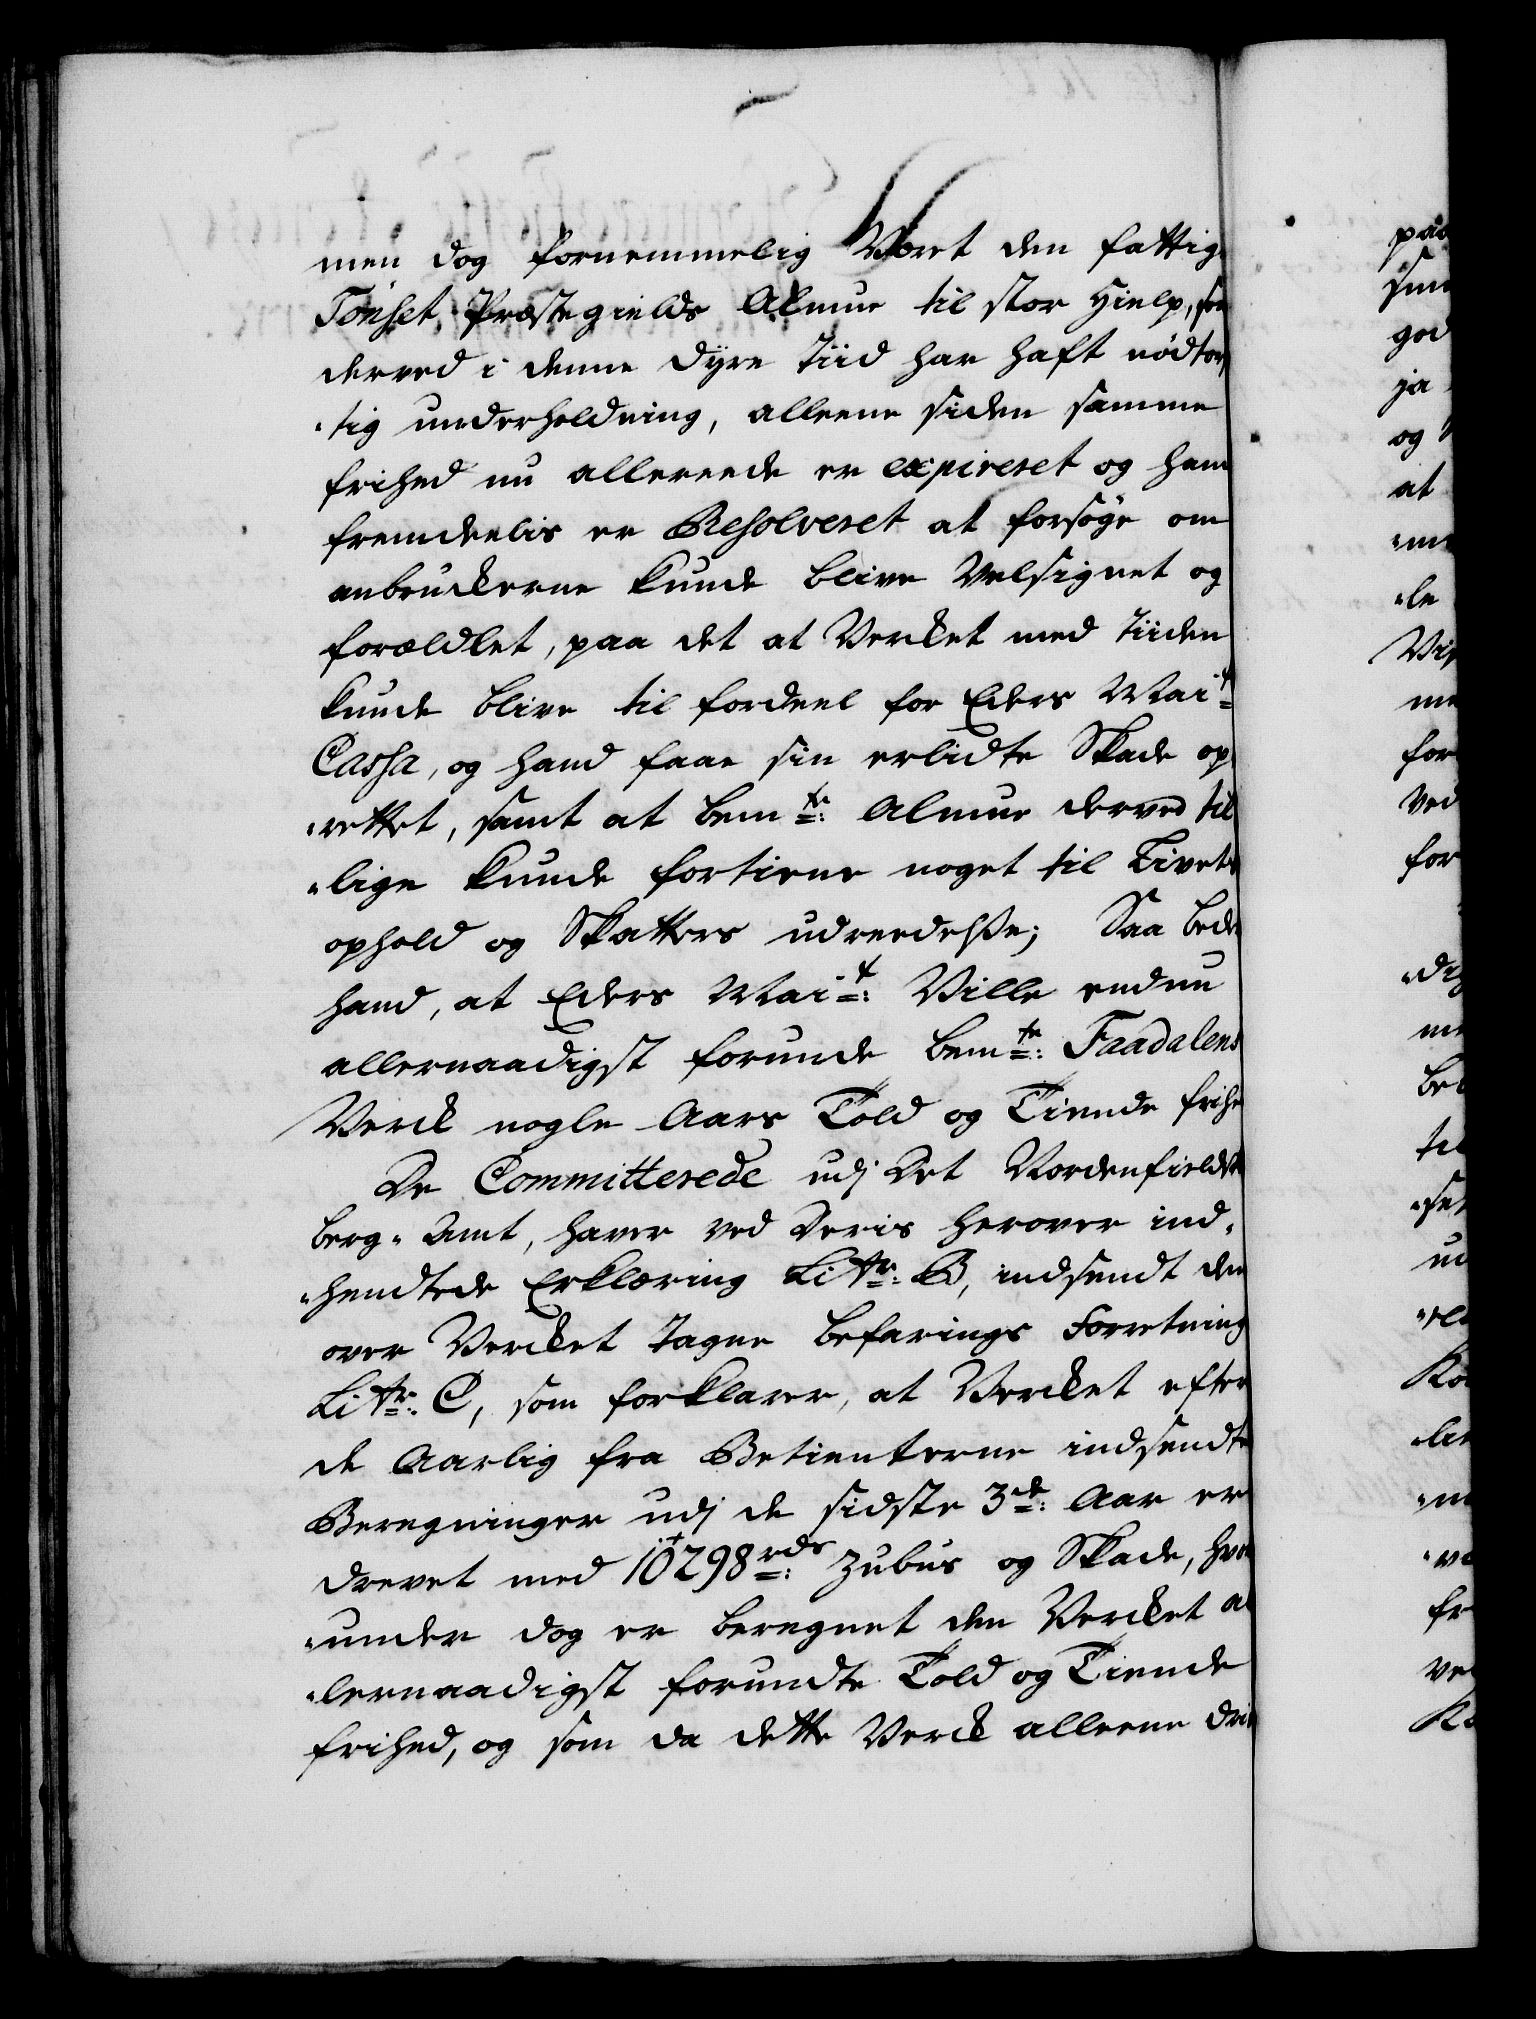 men dog fornemmelig Været den fattig
Tønset Præstegields Almue til stor Hielp, som
derved i denne dyre Tiid har haft nødtørf
„tig underholdning, alleene siden samme
frihed nu allereede er expireret og hand
fremdeelis er Resolveret at forsøge om
anbrudderne kunde blive Velsignet og
forædlet, paa det at Verket med tiiden
kunde blive til fordeel for Eders Mait:
Cassa, og hand faae sin erlidte Skade op
„rettet, samt at bemte: Almue derved til
„lige kunde fortiene noget til Livets
ophold og Skatters udreedelsse; Saa beder
hand, at Eders Mait: Ville endnu
allernaadigst forunde bemte: Faadalens
Verck nogle Aars Told og Tiende frihe
De Committerede udj Det Nordenfieldske
Berg-Amt, haver ved Deris herover ind„
„hendtede Erklæring Litr: B, indsendt den
over Verket tagne Befarings Forretning
Litr: C, som forklarer, at Verket efter
de Aarlig fra Betienterne indsendte
Beregninger udj de sidste 3de: Aar er
drevet med 10298 rdr: Zubus og Skade, hvor
„under dog er beregnet den Verket al
„lernaadigst forundte Told og Tiende
frihed, og som da dette Verck alleene dri
paa
god
ja
og
at
„le
me
for
ved
for
me
til
ud
fr